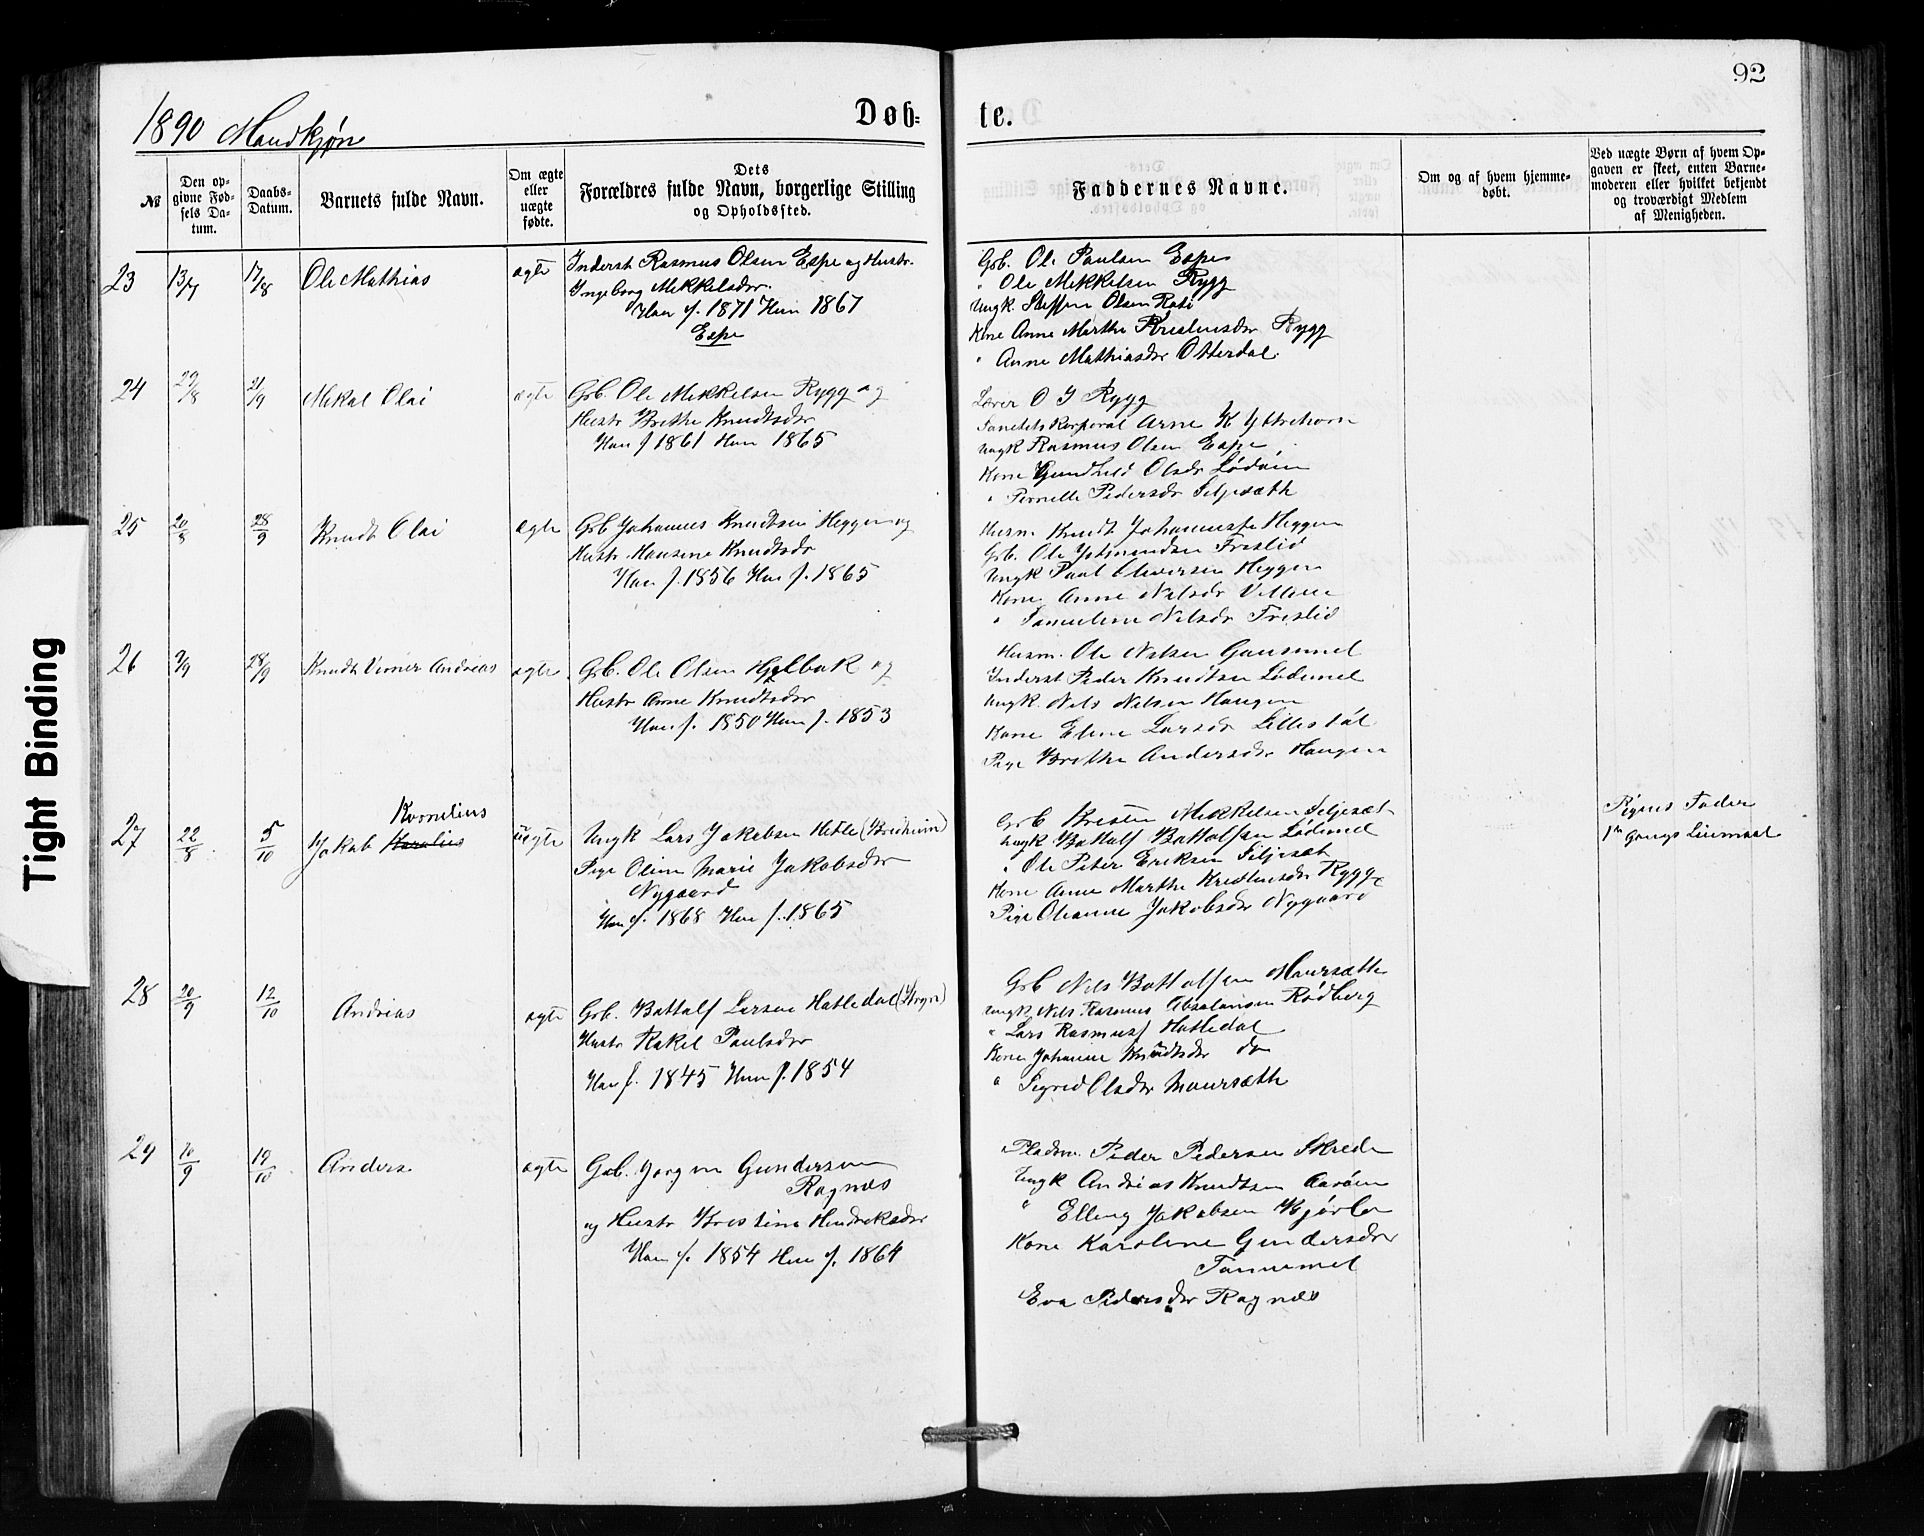 92
1890 Mandkjøn
Døb-
te.
№
Den opgivne Fødsels Datum.
Daabs-Datum.
Barnets fulde Navn.
Om ægte eller uægte fødte.
Dets
Forældres fulde Navn, borgerlige Stilling
og Opholdssted.
Faddernes Navne.
Om og af hvem hjemmedøbt.
Ved uægte Børn af hvem Opgaven er skeet, enten Barnemoderen eller hvilket bekjendt og troværdigt Medlem af Menigheden.
23 13/7 17/8 Ole Mathias ægte Inderst Rasmus Olsen Espe og Hustr.
Ingeborg Mikkelsdr.
Han f. 1871 Hun 1867
Espe
Grb. Ole Paulsen Espe
" Ole Mikkelsen Rygg
Ungk. Steffen Olsen
Kone Anne Marthe Kristensdr Rygg
" Anne Mathiasdr Otterdal
24 29/8 21/9 Mikal Olai ægte Grb. Ole Mikkelsen Rygg og
Hustr Brithe Knudtsdr
Han f 1861 Hun 1865
Lærer O J Rygg
Sanitetskorporal Arne K Yttrehorn
Ungk Rasmus Olsen Espe
Kone Gundhild Olsdr Lødøin
" Pernille Pedersdr Siljesæth
25 20/8 28/9 Knudt Olai ægte Grb Johannes Knudtsen Heggen og
Hustr Hansine Knudtsdr
Han f. 1856 Hun f. 1865
Husm. Knudt Johannesen Heggen
Grb. Ole Fristid
Ungk Paul Heggen
Kone Anne Nilsdr
" Nilsdr Fristid
26 2/9 28/9 Knudt Verner Andreas ægte Grb. Ole Olsen Hjelbak og
Hustr Anne Knudtsdr
Han f. 1850 Hun f. 1853
Husm. Ole Nilsen Gausemel
Inderst Peder Knudtsen Lødemel
Ungk. Nils Nilsen Haugen
Kone Eline Larsdr Lillestøl
Pige Brithe Andersdr Haugen
27 22/8 5/10 Kornelius
Jakob uægte Ungk Lars Jakobsen Hetle (Breiheim)
Pige Oline Marie Jakobsdr
Nygaard
Han f. 1868 Hun f. 1865
Grb Kristen Mikkelsen Siljesæt
Ungk Bottolf Bottolfsen Lødemel
" Ole Peter Eriksen Siljesæt
Kone Anne Marthe Kristensdr Rygg
Pige Oleanne Jakobsdr Nygaard
Pigens Fader
1ste Gangs Leiermaal
28 20/9 12/10 Andreas ægte Grb. Bottolf Larsen Hatledal (Stryn)
Hustr Rakel Paulsdr
Han f. 1845 Hun f. 1854
Grb Nils Bottolfsen Maursæth
Ungk Nils Rasmus Absalonsen Rødberg
" Lars Rasmuss Hatledal
Kone Johanne Knudtsdr do
" Sigrid Olsdr Maursæth
29 10/9 19/10 Anders ægte Grb. Jørgen Gundersen
Ragnæs
og Hustr Kristine Hendriksdr
Han f. 1854 Hun f. 1864
Pladsm. Peder Pedersen Skrede
Ungk Andreas Knudtsen Aarøen
" Elling Jakobsen Bjørlo
Kone Karoline Gundersdr
Tannemel
Eva Pedersdr Ragnæs
Tight Binding